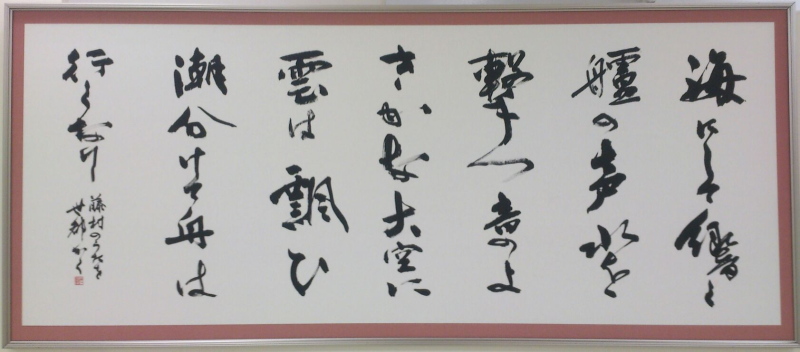 海にして響く
艫の声水を
撃つ音のよ
きかな大空に
雲は飄ひ
潮分けて舟は
行くなり
藤村のうたを
かく